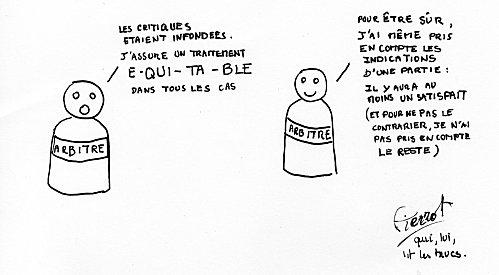 LES CRITIQUES
ETAIENT INFONDEES.
J'ASSURE UN TRAITEMENT
E-QUI-TA-BLE
DANS TOUS LES CAS
ARBITRE
POUR ÊTRE SÛR,
J'AI MÊME PRIS
EN COMPTE LES
INDICATIONS
D'UNE PARTIE :
IL Y AURA AU
MOINS UN SATISFAIT
(ET POUR NE PAS LE
CONTRARIER, JE N'AI
PAS PRIS EN COMPTE
LE RESTE)
ARBITRE
Pierrot
qui, lui,
lit les trucs.